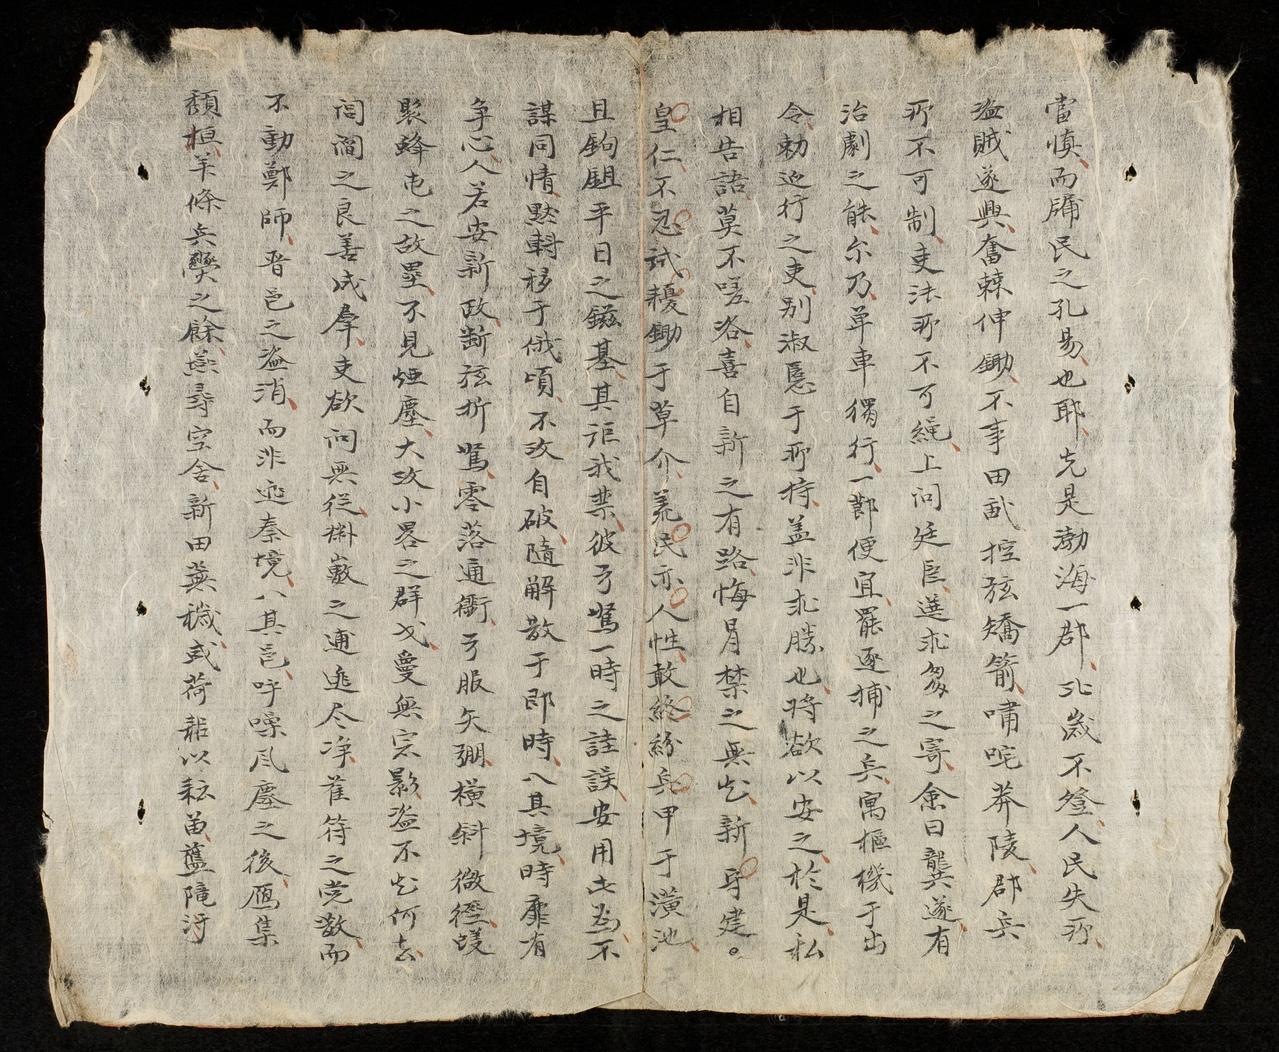 當慎而牖民之孔易也耶先是渤海一郡比歲不登人民失所
盜賊遂興奮棘伸鋤不事田畝控弦矯箭嘯咤莽陵郡兵
所不可制吏法所不可繩上問廷臣選求芻之寄僉曰龔遂有
治劇之能尔乃單車獨行一節便宜罷逐捕之兵寓樞機于出
令勅迎行之吏別淑慝于所持盖非求勝也將欲以安之於是私
相告語莫不嗟咨喜自新之有路悔冐禁之無比新身建
皇仁不忍試耰鋤于草介羌民亦人性敢終紛兵甲于潢池
且鉤鉏平日之鎡基其詎我禁彼弓駑一時之註誤安用此為不
謀同情黙轉移于俄頃不攻自破隨解散于即時入其境時靡有
爭心人若安新政断弦折駑零落通衢弓服矢弸橫斜微徑蟻
聚蜂屯之故壘不見烟塵大攻小畧之群戎憂無寃影盜不比何去
閭閻之良善成羣吏欲问無從㪺藪之逋逃尽净萑苻之党散而
不動鄭師晋邑之盜消而非逃秦境入其邑呼噪风塵之後鴈集
頹桓羊條兵燹之餘燕尋空舍新田蕪穢或荷耜以耘苗舊隄汙